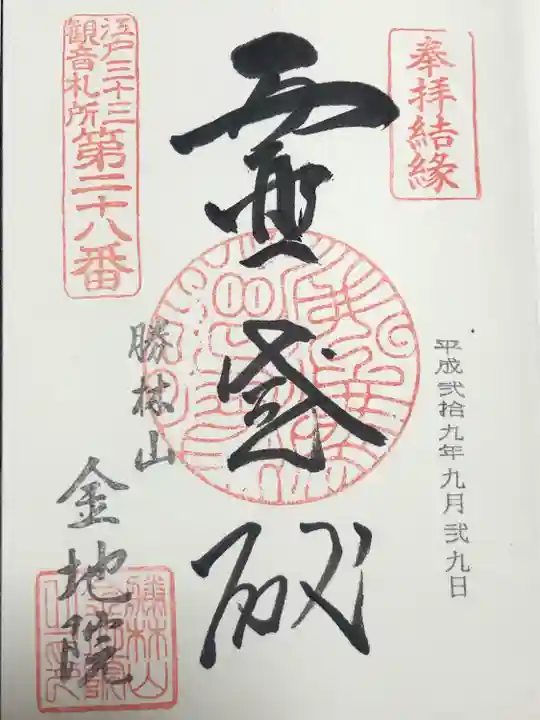 奉拝結縁
平成弐拾九年九月弐九日
靈感殿
江戸三十三
觀音札所
第二十八番
勝林山
金地院
勝林山